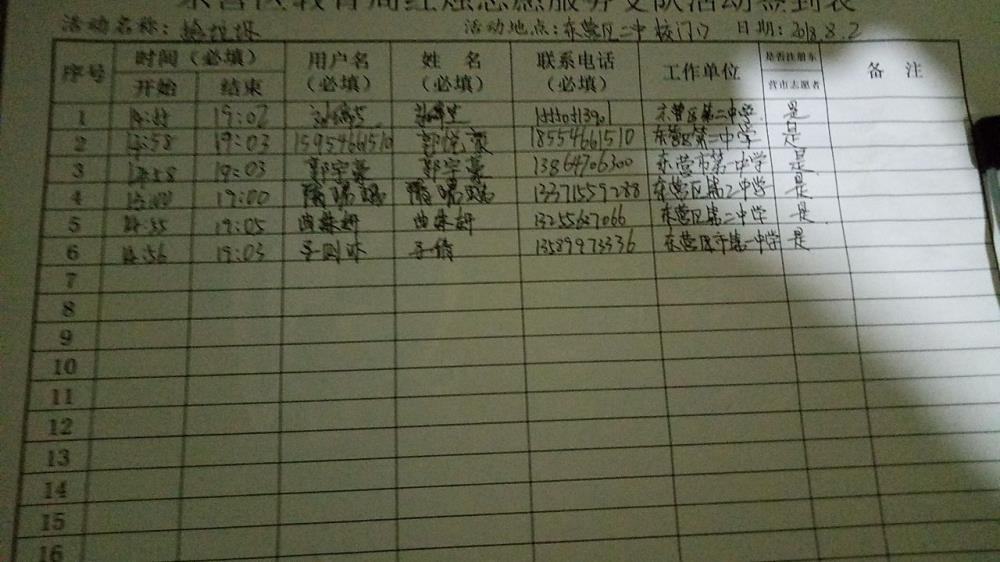 东营区教育局红烛志愿服务支队活动签到表
活动名称：捡垃圾 活动地点：东营区二中校门口 日期：2018.8.2
序号 时间（必填） 用户名（必填） 姓名（必填） 联系电话（必填） 工作单位 是否注册东营市志愿者 备注
开始 结束
1 19:02 东营区第二中学 是
2 14:58 19:03 15954661510 郭悦豪 18554661510 东营区第一中学 是
3 14:58 19:03 郭宇豪 郭宇豪 13864706300 东营市第一中学 是
4 15:00 19:00 13371559288 东营区第2中学 是
5 14:55 19:05 曲姝妍 曲姝妍 13255667066 东营区第二中学 是
6 14:56 19:03 13589973336 东营区第一中学 是
7
8
9
10
11
12
13
14
15
16